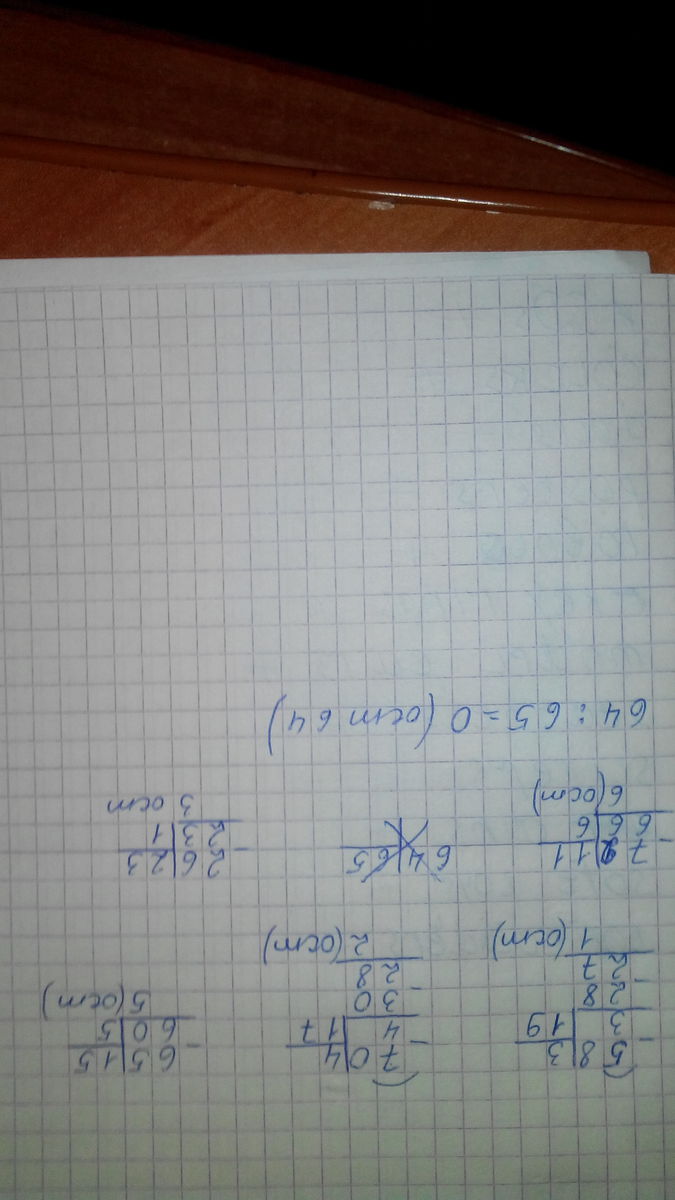 58|3
- 3|19
28
- 27
1 (ост)
70|4
- 4|17
30
- 28
2 (ост)
65|15
- 60|5
5 (ост)
72|11
- 66|6
6 (ост)
64|65
26|23
- 23|1
3 ост
64 : 65 = 0 (ост 64)